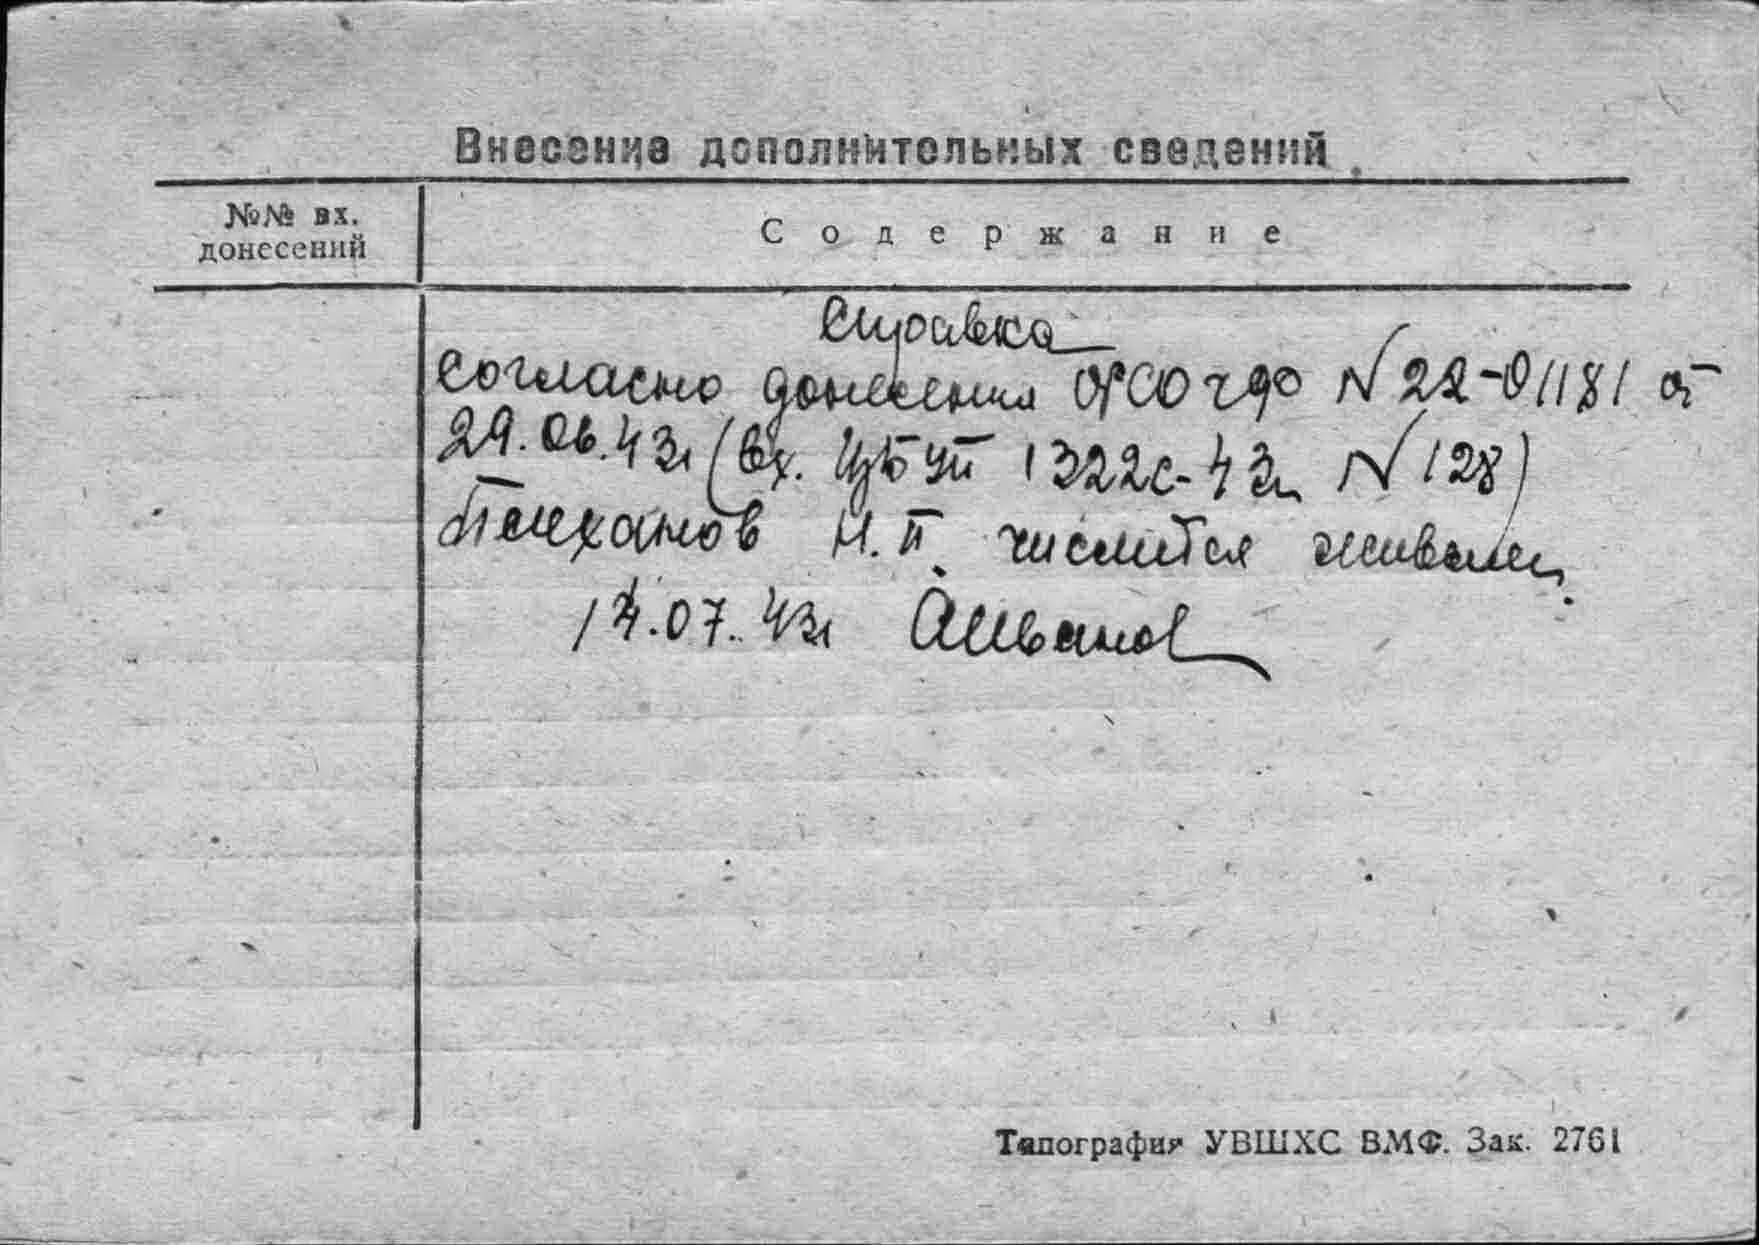 Внесение дополнительных сведений
№№ вх.
донесений
Содержание
Справка
Согласно донесения ОРСО ЧФ N 22-01181 от
29.06.43г (Вх. ЦБУП 1322с-43г N 128)
Плеханов Н.П. числится живым.
14.07.43г АИванов
Типография УВШХС ВМФ. Зак. 2761